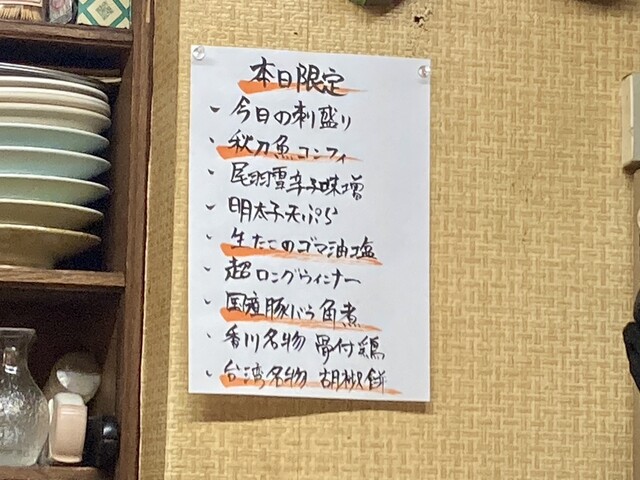 本日限定
今日の刺盛り
秋刀魚コンフィ
尾羽雪辛子味噌
明太子天ぷら
生たこのゴマ油塩
超ロングウィンナー
国産豚バラ角煮
香川名物 骨付鶏
台湾名物 胡椒餅